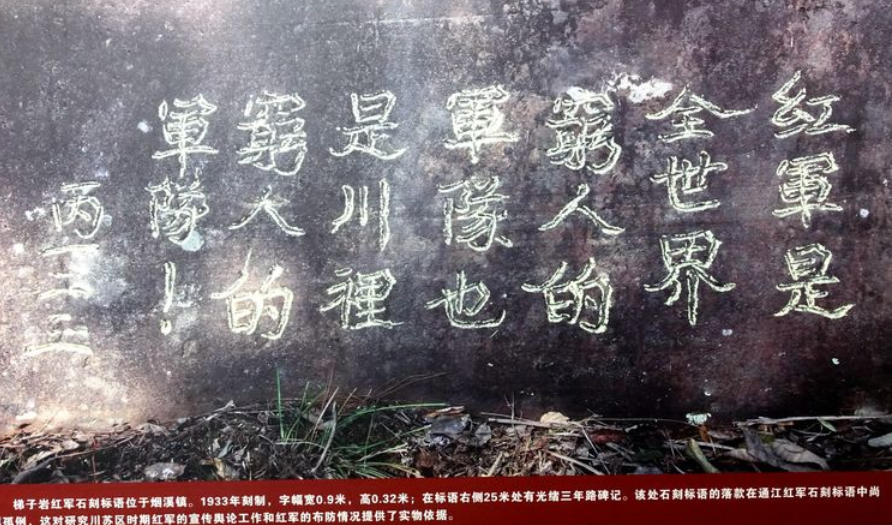 红軍是
全世界
窮人的
軍隊也
是川裡
窮人的
軍隊！
梯子岩红军石刻标语位于烟溪镇。1933年刻制，字幅宽0.9米，高0.32米；在标语右侧25米处有光绪三年路碑记。该处石刻标语的落款在通江红军石刻标语中尚
孤例，这对研究川苏区时期红军的宣传舆论工作和红军的布防情况提供了实物依据。